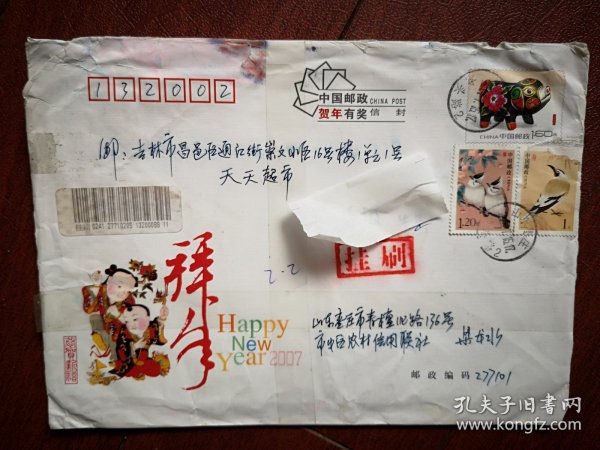 132002
中国邮政 CHINA POST
贺年有奖信封
邮：吉林市昌邑区通江街崇文小区16号楼1单元1号
天天超市
挂刷
中国邮政
CHINA
160
中国邮政
1.20元
中国邮政
1
拜年
Happy
New
Year 2007
山东枣庄市青檀北路136号
市中区农村信用联社
邮政编码 277101
孔夫子旧书网
www.kongfz.com